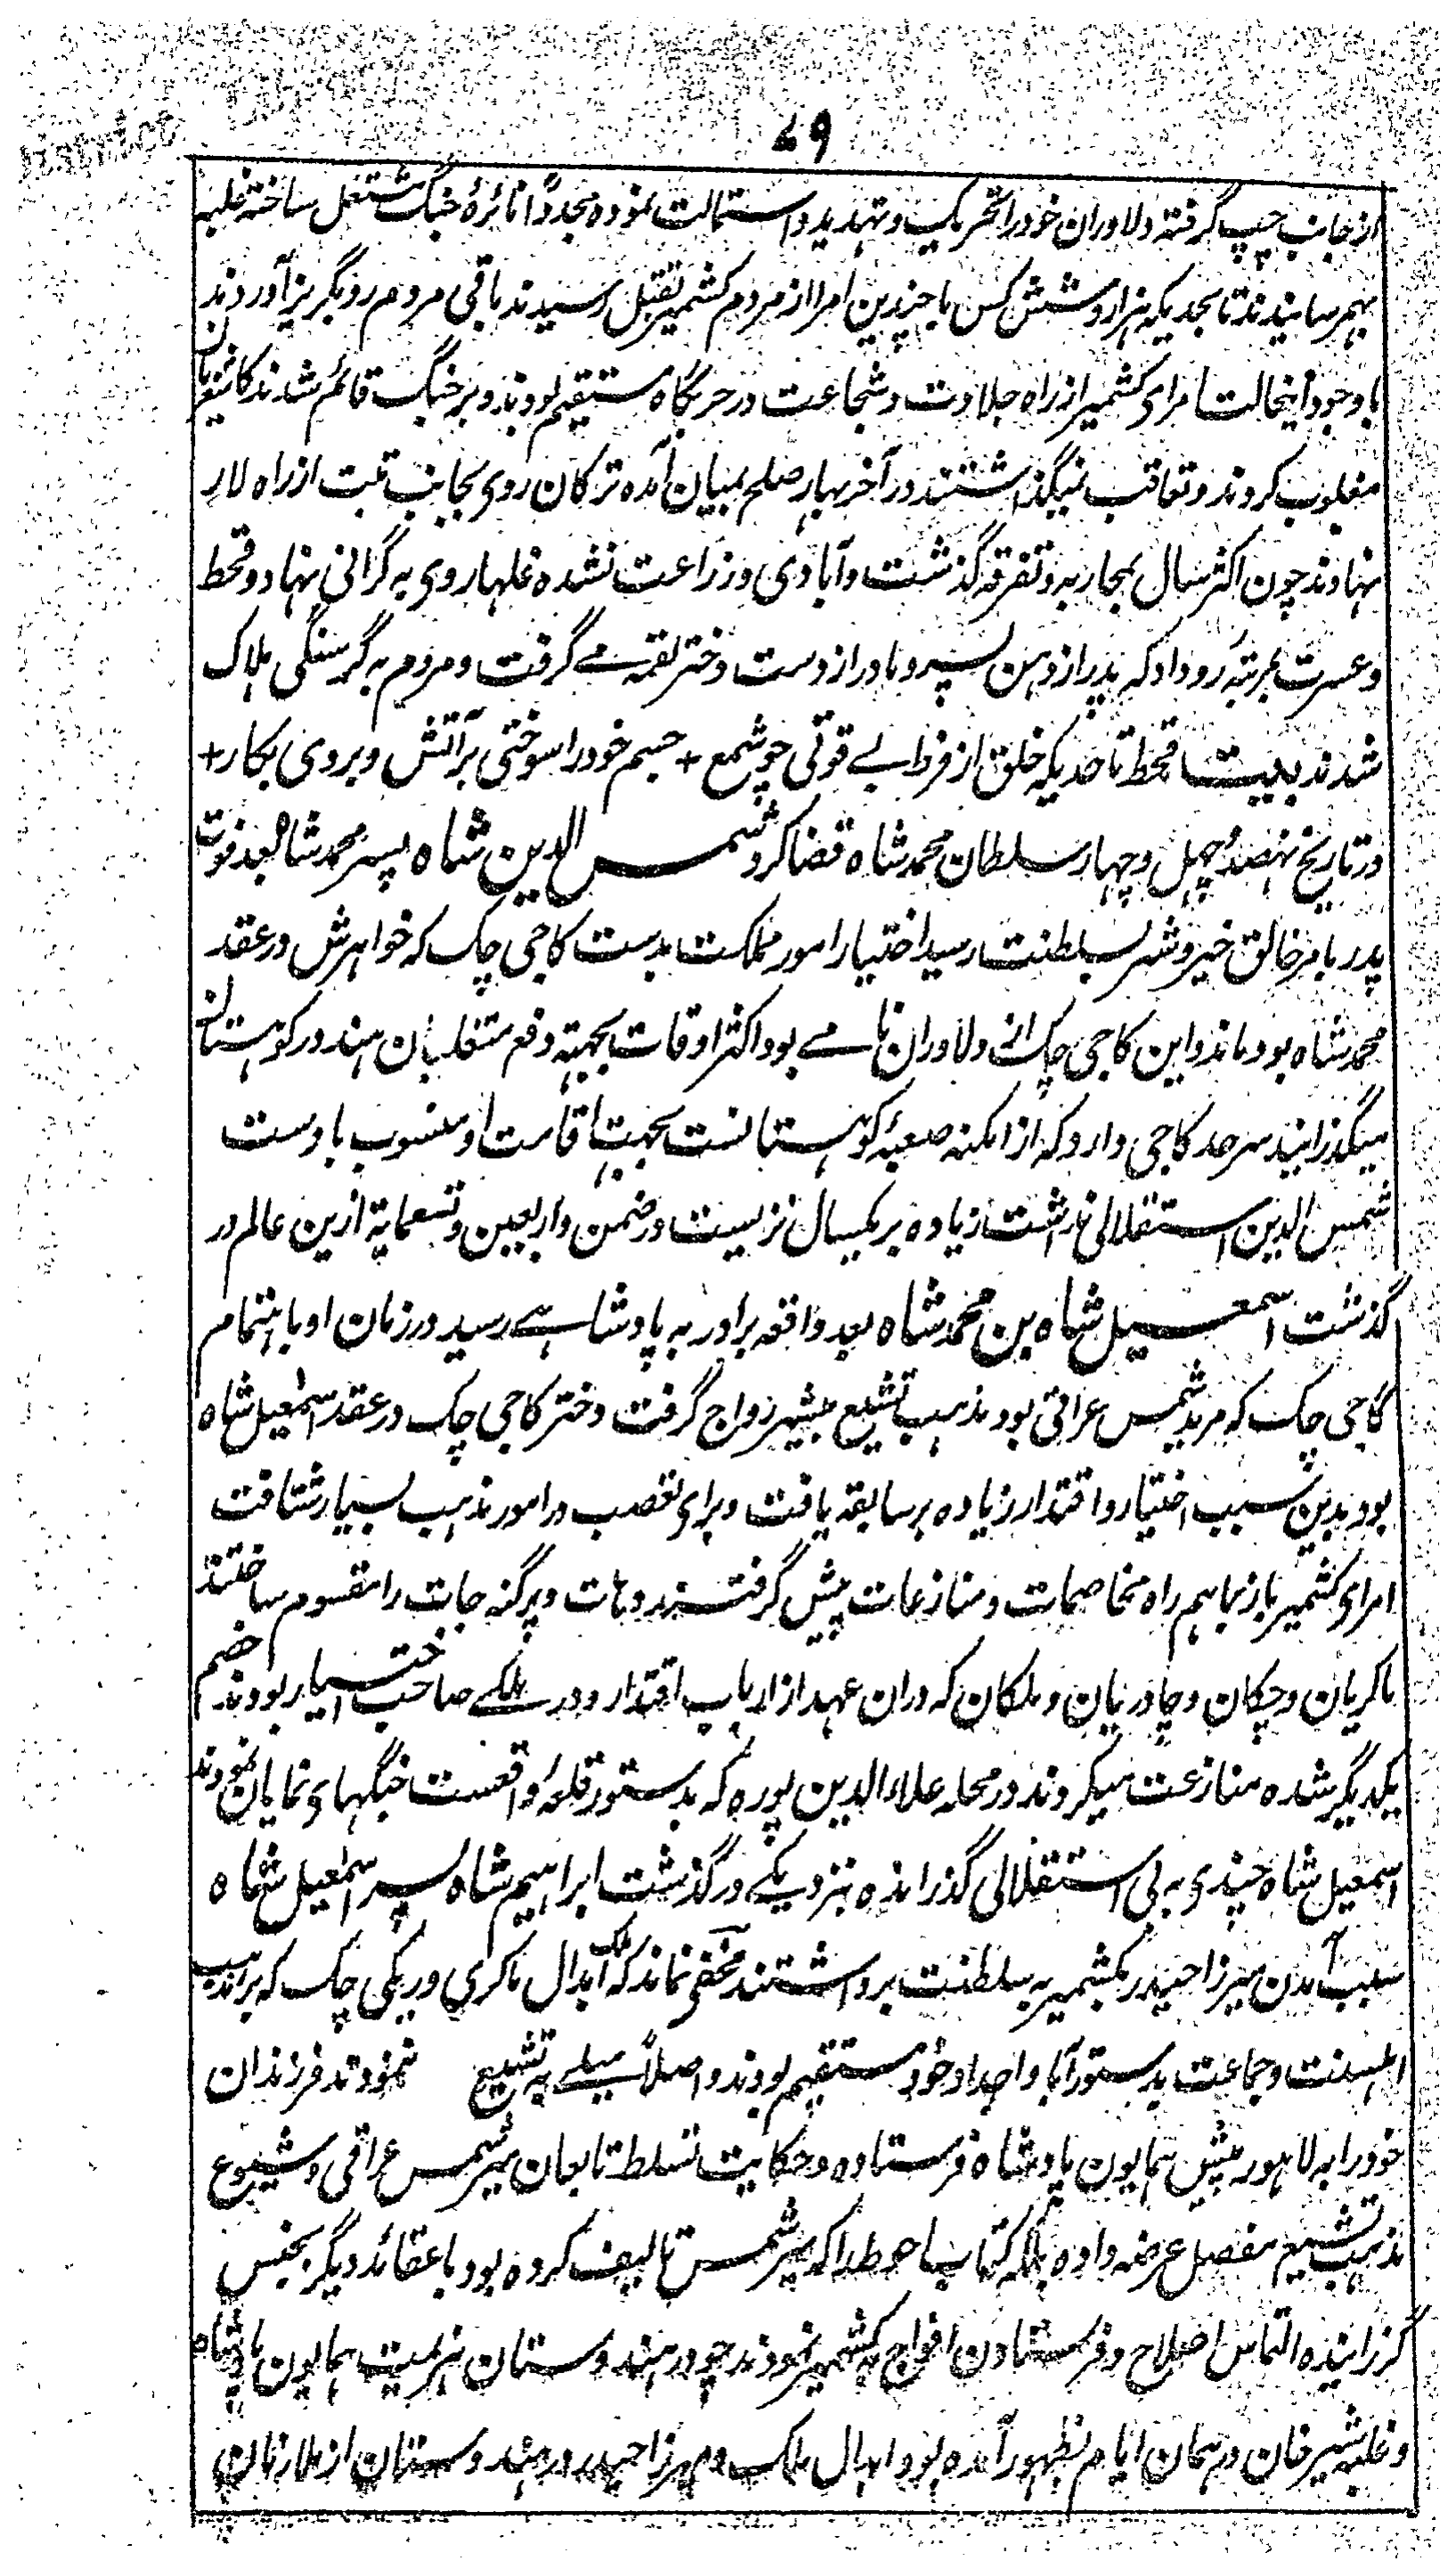 ۷۹
از جانب چپ گرفته دلاوران خود را تحریک و تهدید و استمالت نموده مجدداً نائرۂ جنگ مشتعل ساخته غلبه
بهم رسانیدند تا بحدیکه هزار و شش کس با چندین امرا از مردم کشمیر بقتل رسیدند باقی مردم رو بگریز آوردند
با وجود اینحالت امرای کشمیر از راه جلادت و شجاعت در حربگاه مستقیم بودند و بر جنگ قائم شدند کاشغریان
مغلوب کردند و تعاقب نمیگذاشتند در آخر بهار صلح بمیان آمده ترکان روی بجانب تبت از راه لار
نهادند چون اکثر سال بمحاربه و تفرقه گذشت و آبادی و زراعت نشده غلها روی به گرانی نهاد و قحط
و عسرت بمرتبۂ رو داد که پدر از دهن پسر و مادر از دست دختر لقمه مے گرفت و مردم به گرسنگی هلاک
شدند بیت قحط تا حدیکه خلق از فرط بے قوتی چو شمع + جسم خود را سوختی بر آتش و بردی بکار +
در تاریخ نهصد و چهل و چهار سلطان محمد شاه قضا کرد شمس الدین شاه پسر محمد شاه بعد فوت
پدر بامر خالق خیر و شر بسلطنت رسید اختیار امور مملکت بدست کاجی چک که خواهرش در عقد
محمد شاه بود ماند و این کاجی چک از دلاوران نامے بود اکثر اوقات بجهته دفع متغلبان هند در کوهستان
میگذرانید سرحد کاجی وارو که از امکنه صعبۂ کوهستانست بجهت اقامت او منسوب باوست
شمس الدین استقلالی نداشت زیاده بر یکسال نزیست در ضمن و اربعین و تسعمایة ازین عالم در
گذشت اسمعیل شاه بن محمد شاه بعد واقعه برادر به پادشاهے رسید در زمان او باهتمام
کاجی چک که مرید شمس عراقی بود مذهب تشیع بیشیر رواج گرفت دختر کاجی چک در عقد اسمٰعیل شاه
بود بدین سبب اختیار و اقتدار زیاده بر سابقه یافت و برای تعصب در امور مذهب بسیار شتافت
امرای کشمیر باز بباهم راه مخاصمات و منازعات پیش گرفتند دهات و پرگنه جات را مقسوم ساختند
ماکریان و چکان و چادریان و ملکان که دران عهد از ارباب اقتدار و در ملکے صاحب اختیار بودند خصم
یکدیگر شده منازعت میکردند در محله علاء الدین پوره که بدستور قلعۂ واقعست جنگهای نمایان نمودند
اسمٰعیل شاه چندی به بی استقلالی گذرانده بنزدیکے درگذشت ابراهیم شاه پسر اسمٰعیل شاه
سبب آمدن میرزا حیدر بکشمیر به سلطنت برداشتند مخفی نماند که ملک ابدال ماکری و ریکی چک که بر مذهب
اهلسنت و جماعت بدستور آبا و اجداد خود مستقیم بودند و اصلاً میلے به تشیع ننمودند فرزندان
خود را به لاهور پیش همایون پادشاه فرستاده و حکایت تسلط تابعان میر شمس عراقی و شیوع
مذهب تشیع مفصل عرضه داده بلکه کتاب احوطه را که میر شمس تالیف کرده بود با عقائد دیگر بجنس
گزرانیده التماس اصلاح و فرستادن افواج به کشمیر نمودند چو در هندوستان هزیمت همایون پادشاه
و غلبه شیر خان در همان ایام بظهور آمده بود ابدال ملک و میرزا حیدر در هندوستان از ملازمان